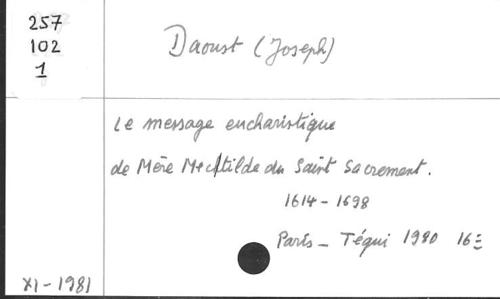 257
102
1
Daoust (Joseph)
Le message eucharistique
de Mère Mectilde du Saint Sacrement.
1614 - 1698
Paris - Téqui 1980 16=
XI - 1981